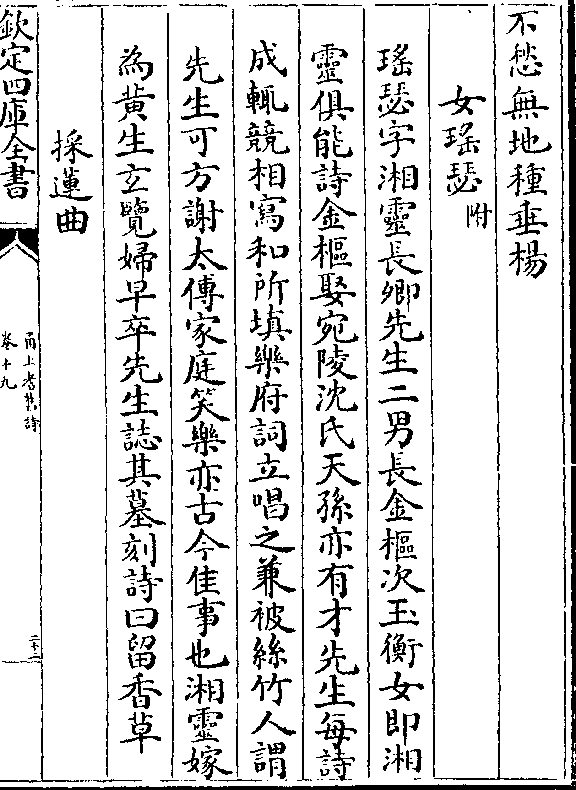 不愁無地種垂楊
女瑤瑟附
瑤瑟字湘靈長卿先生二男長金樞次玉衡女即湘
靈俱能詩金樞娶宛陵沈氏天孫亦有才先生每詩
成輒競相寫和所填樂府詞立唱之兼被絲竹人謂
先生可方謝太傅家庭笑樂亦古今佳事也湘靈嫁
為黃生玄覽婦早卒先生誌其墓刻詩曰留香草
採蓮曲
欽定四庫全書
甬上耆舊詩
卷十九
二十二